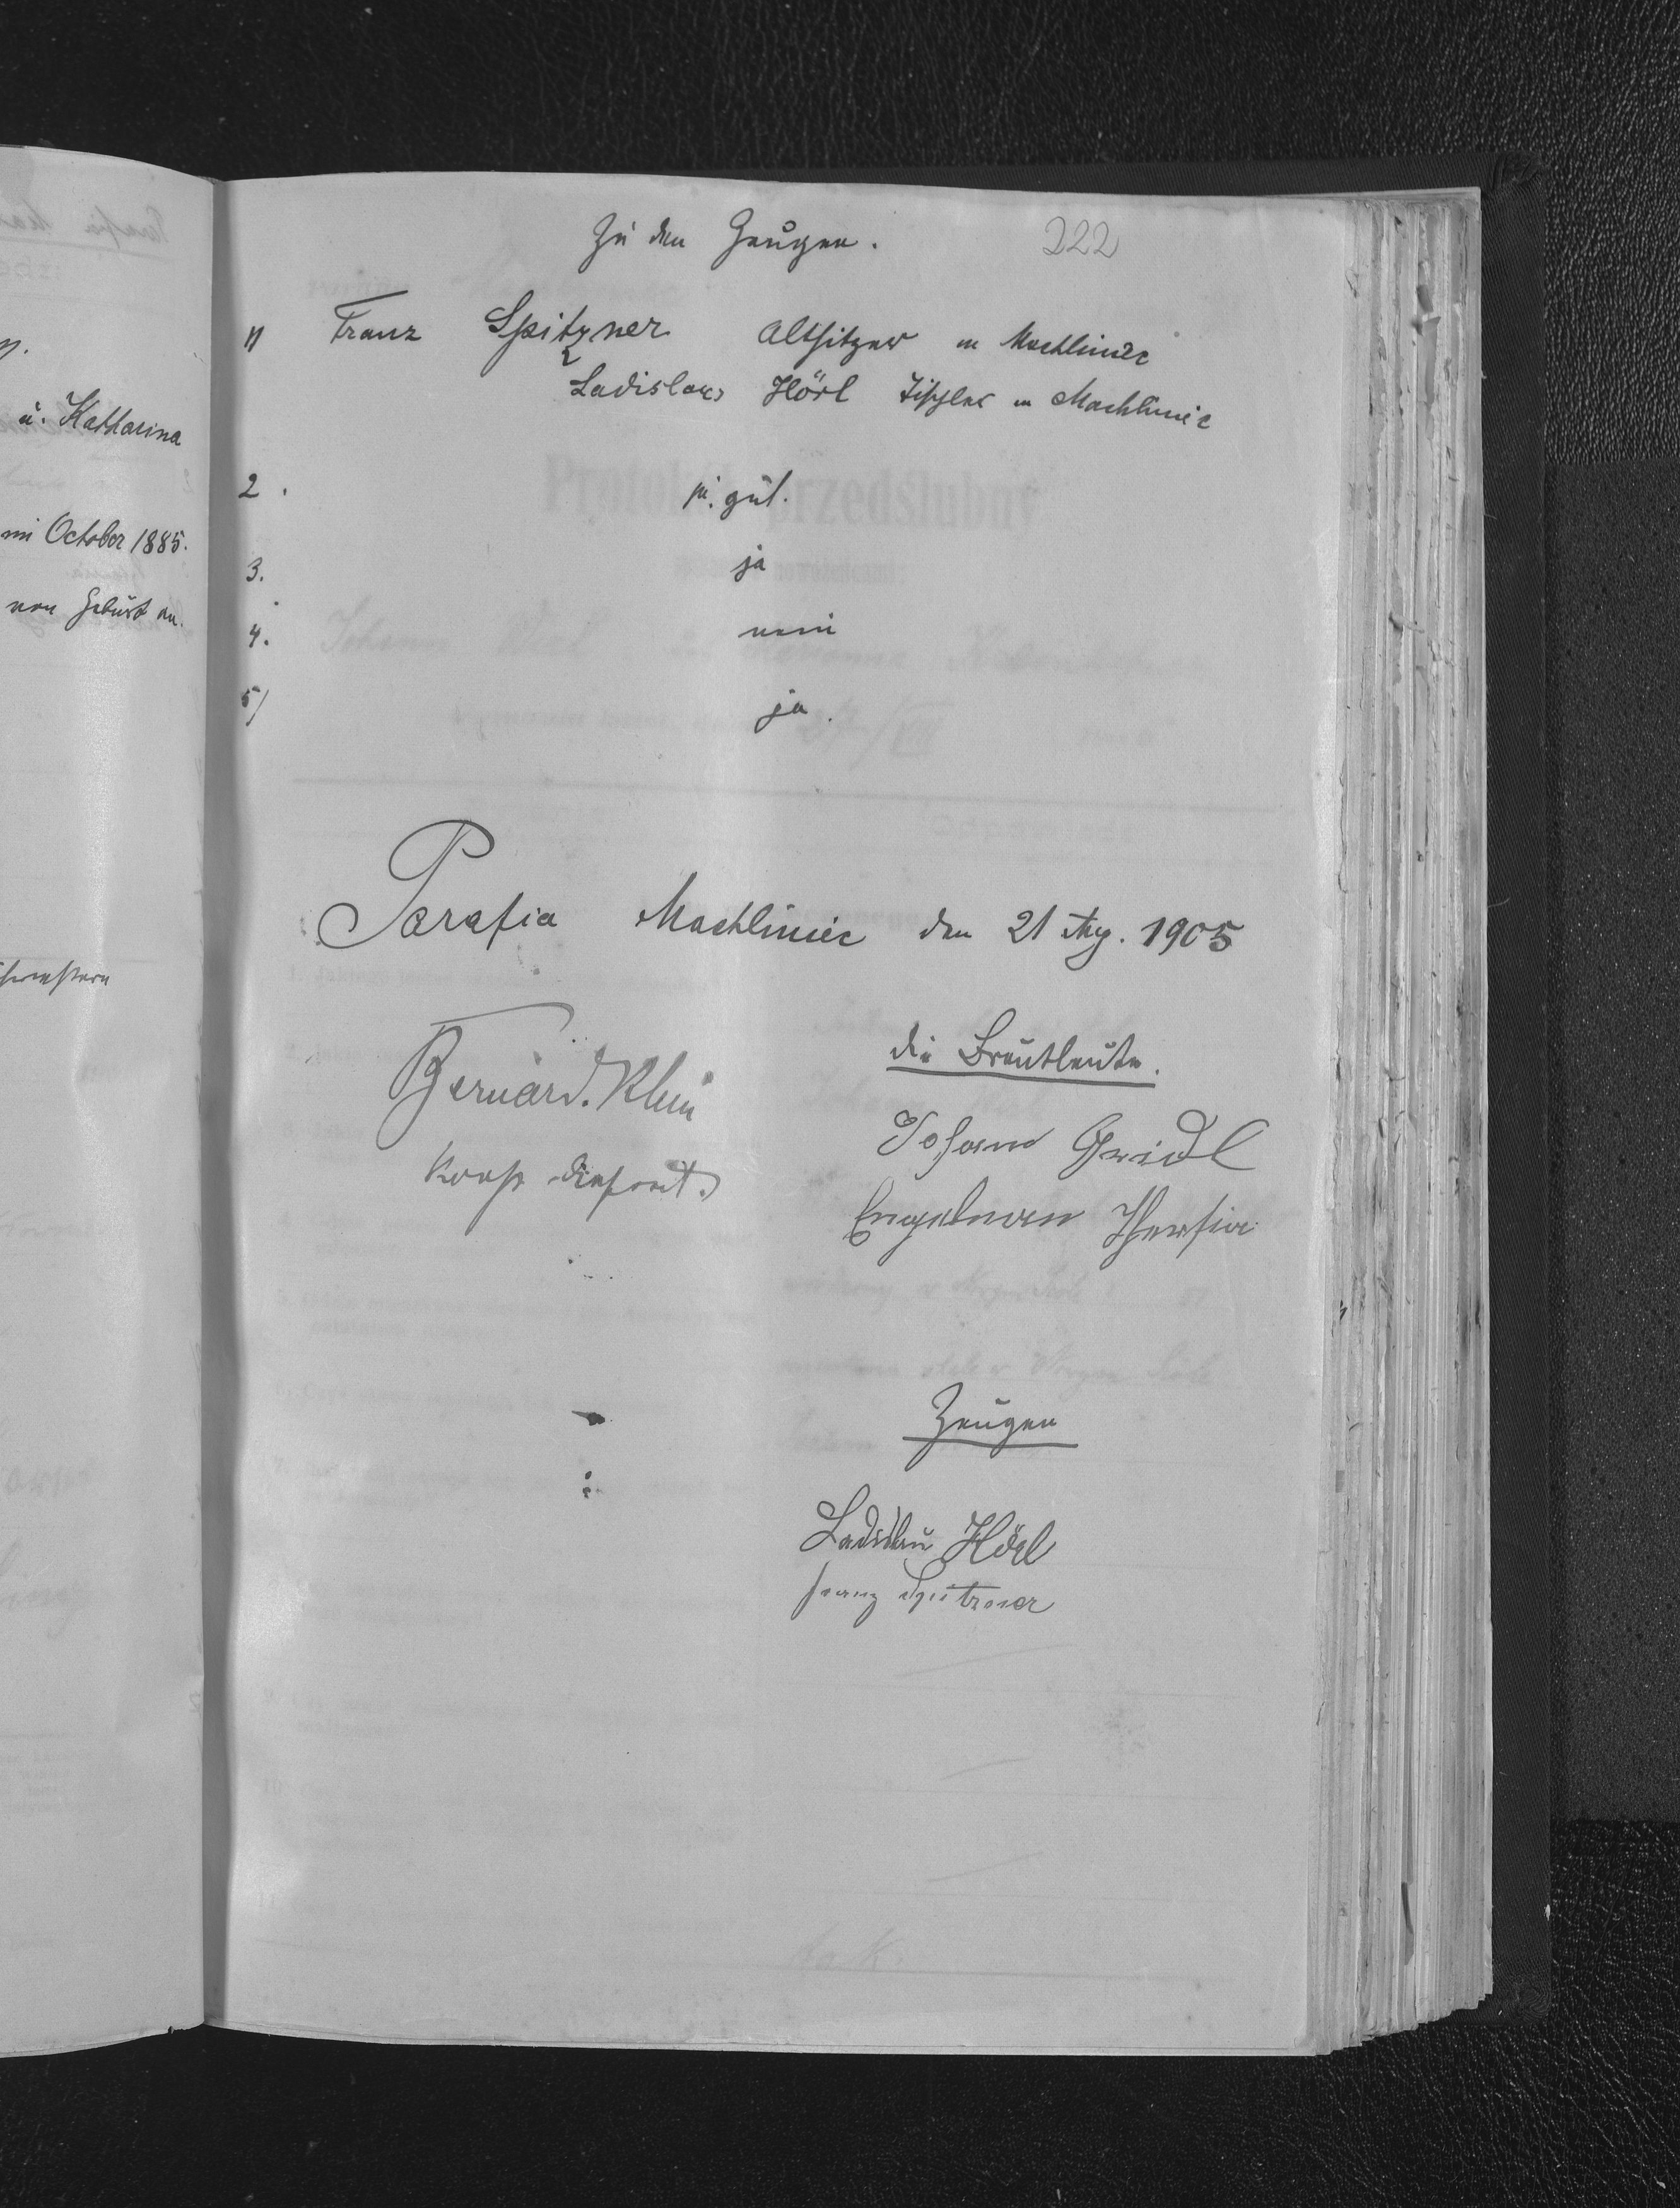 u. Katharina
October 1885.
von Geburt an.
Zu den Zeugen. 222
1) Franz Spitzner Altsitzer in Machliniec
Ladislaus Hörl Tischler in Machliniec
2. ja. gut.
3. ja
4. nein
5) ja.
Parafia Machliniec den 21 Aug. 1905
Bernard. Klein
Koop. Exposit.
die Brautleute.
Johann Gridl
Engelman Thersia
Zeugen
Ladislau Hörl
Franz Spitzner